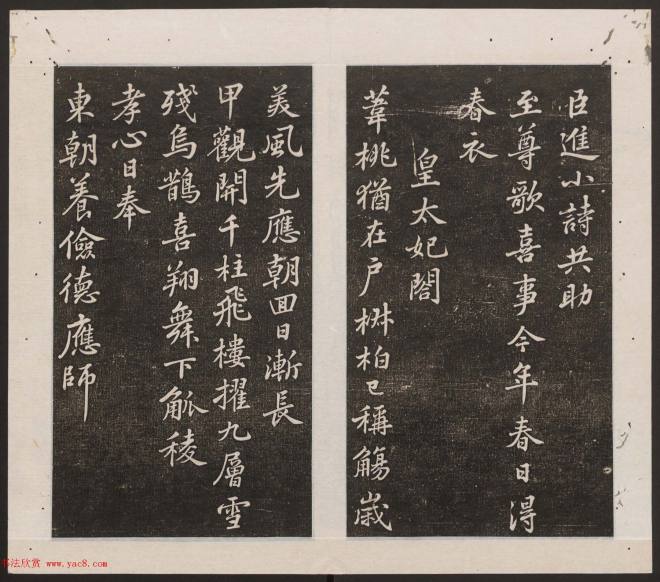 臣進小詩共助
至尊歌喜事今年春日得
春衣
皇太妃閤
葦桃猶在戶椒柏已稱觴歲
美風先應朝回日漸長
甲觀開千柱飛樓擢九層雪
殘烏鵲喜翔舞下觚稜
孝心日奉
東朝養儉德應師
书法欣赏 www.yac8.com